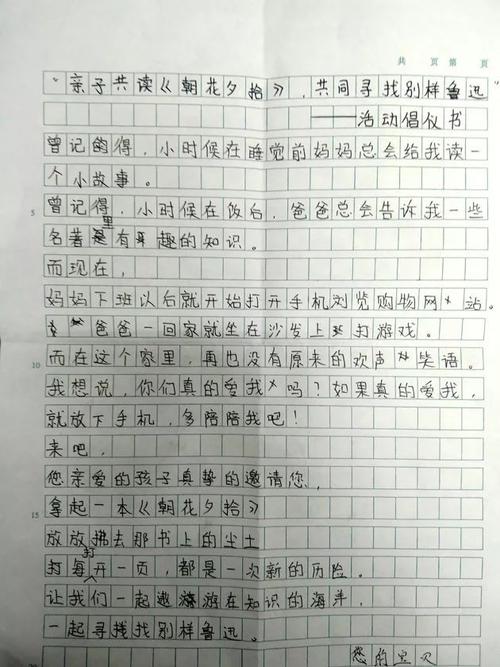 共 页 第 页
“亲子共读《朝花夕拾》，共同寻找别样鲁迅”
——活动倡仪书
曾记得，小时候在睡觉前妈妈总会给我读一
个小故事。
5 曾记得，小时候在饭后，爸爸总会告诉我一些
名著里有趣的知识。
而现在，
妈妈下班以后就开始打开手机浏览购物网站。
爸爸一回家就坐在沙发上打游戏。
10 而在这个家里，再也没有原来的欢声笑语。
我想说，你们真的爱我吗？如果真的爱我，
就放下手机，多陪陪我吧！
来吧，
您亲爱的孩子真挚的邀请您，
15 拿起一本《朝花夕拾》
放放拂去那书上的尘土
打每打开一页，都是一次新的历险。
让我们一起遨游在知识的海洋，
一起寻找别样鲁迅。
您的宝贝